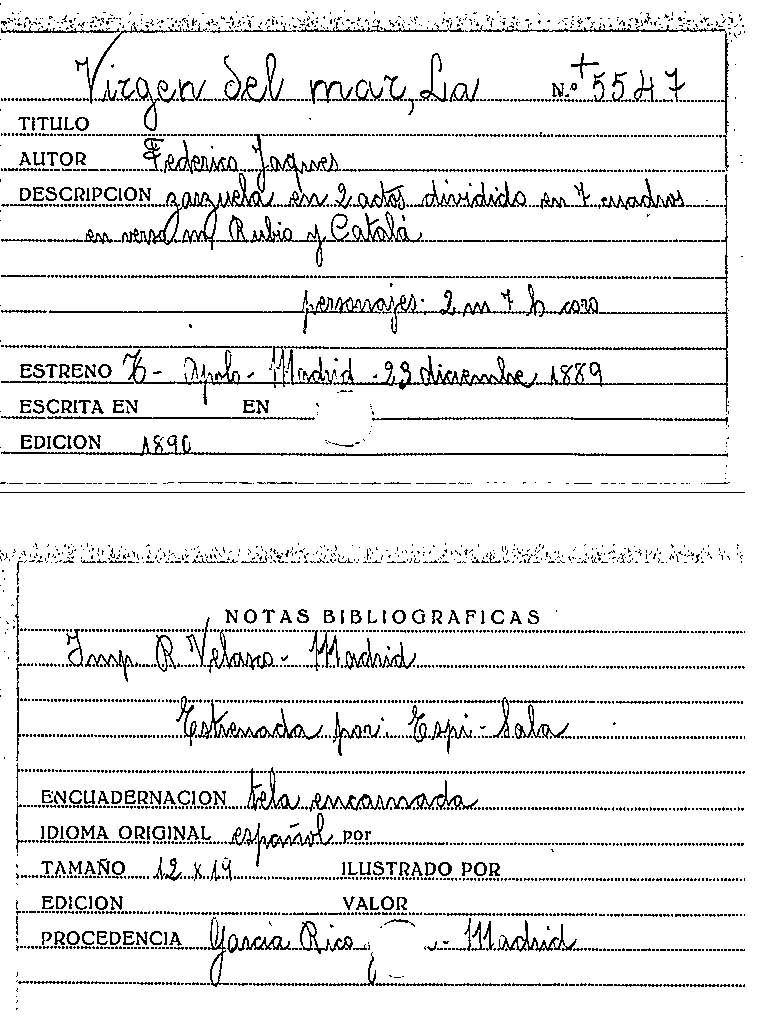 Virgen del mar, La N.º +5547
TITULO
AUTOR Federico Jaques
DESCRIPCION zarzuela en 2 actos dividido en 7 cuadros
en verso m, Rubio y Catalá
personajes: 2 m 7 h coro
ESTRENO T- Apolo - Madrid - 23 diciembre 1889
ESCRITA EN EN
EDICION 1890
NOTAS BIBLIOGRAFICAS
Imp. R. Velasco - Madrid
Estrenada por: Espi - Sala
ENCUADERNACION tela encarnada
IDIOMA ORIGINAL español por
TAMAÑO 12 x 19 ILUSTRADO POR
EDICION VALOR
PROCEDENCIA Garcia Rico - Madrid